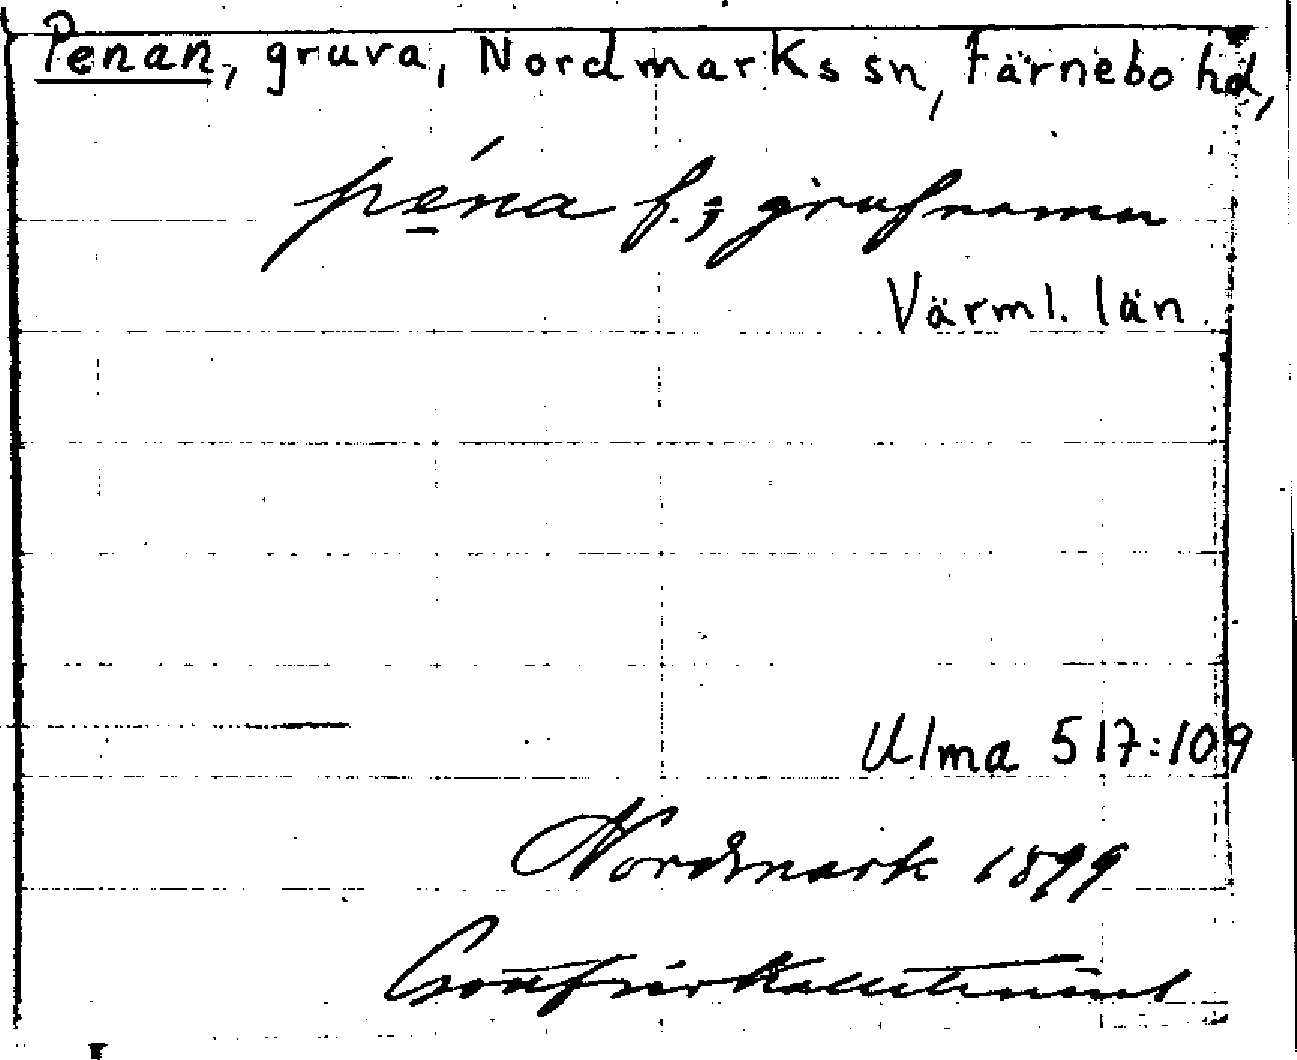 Penan, gruva, Nordmarks sn, Färnebo hd,
péna f.; grufnamn
Värml. län.
Ulma 517:109
Nordmark 1899